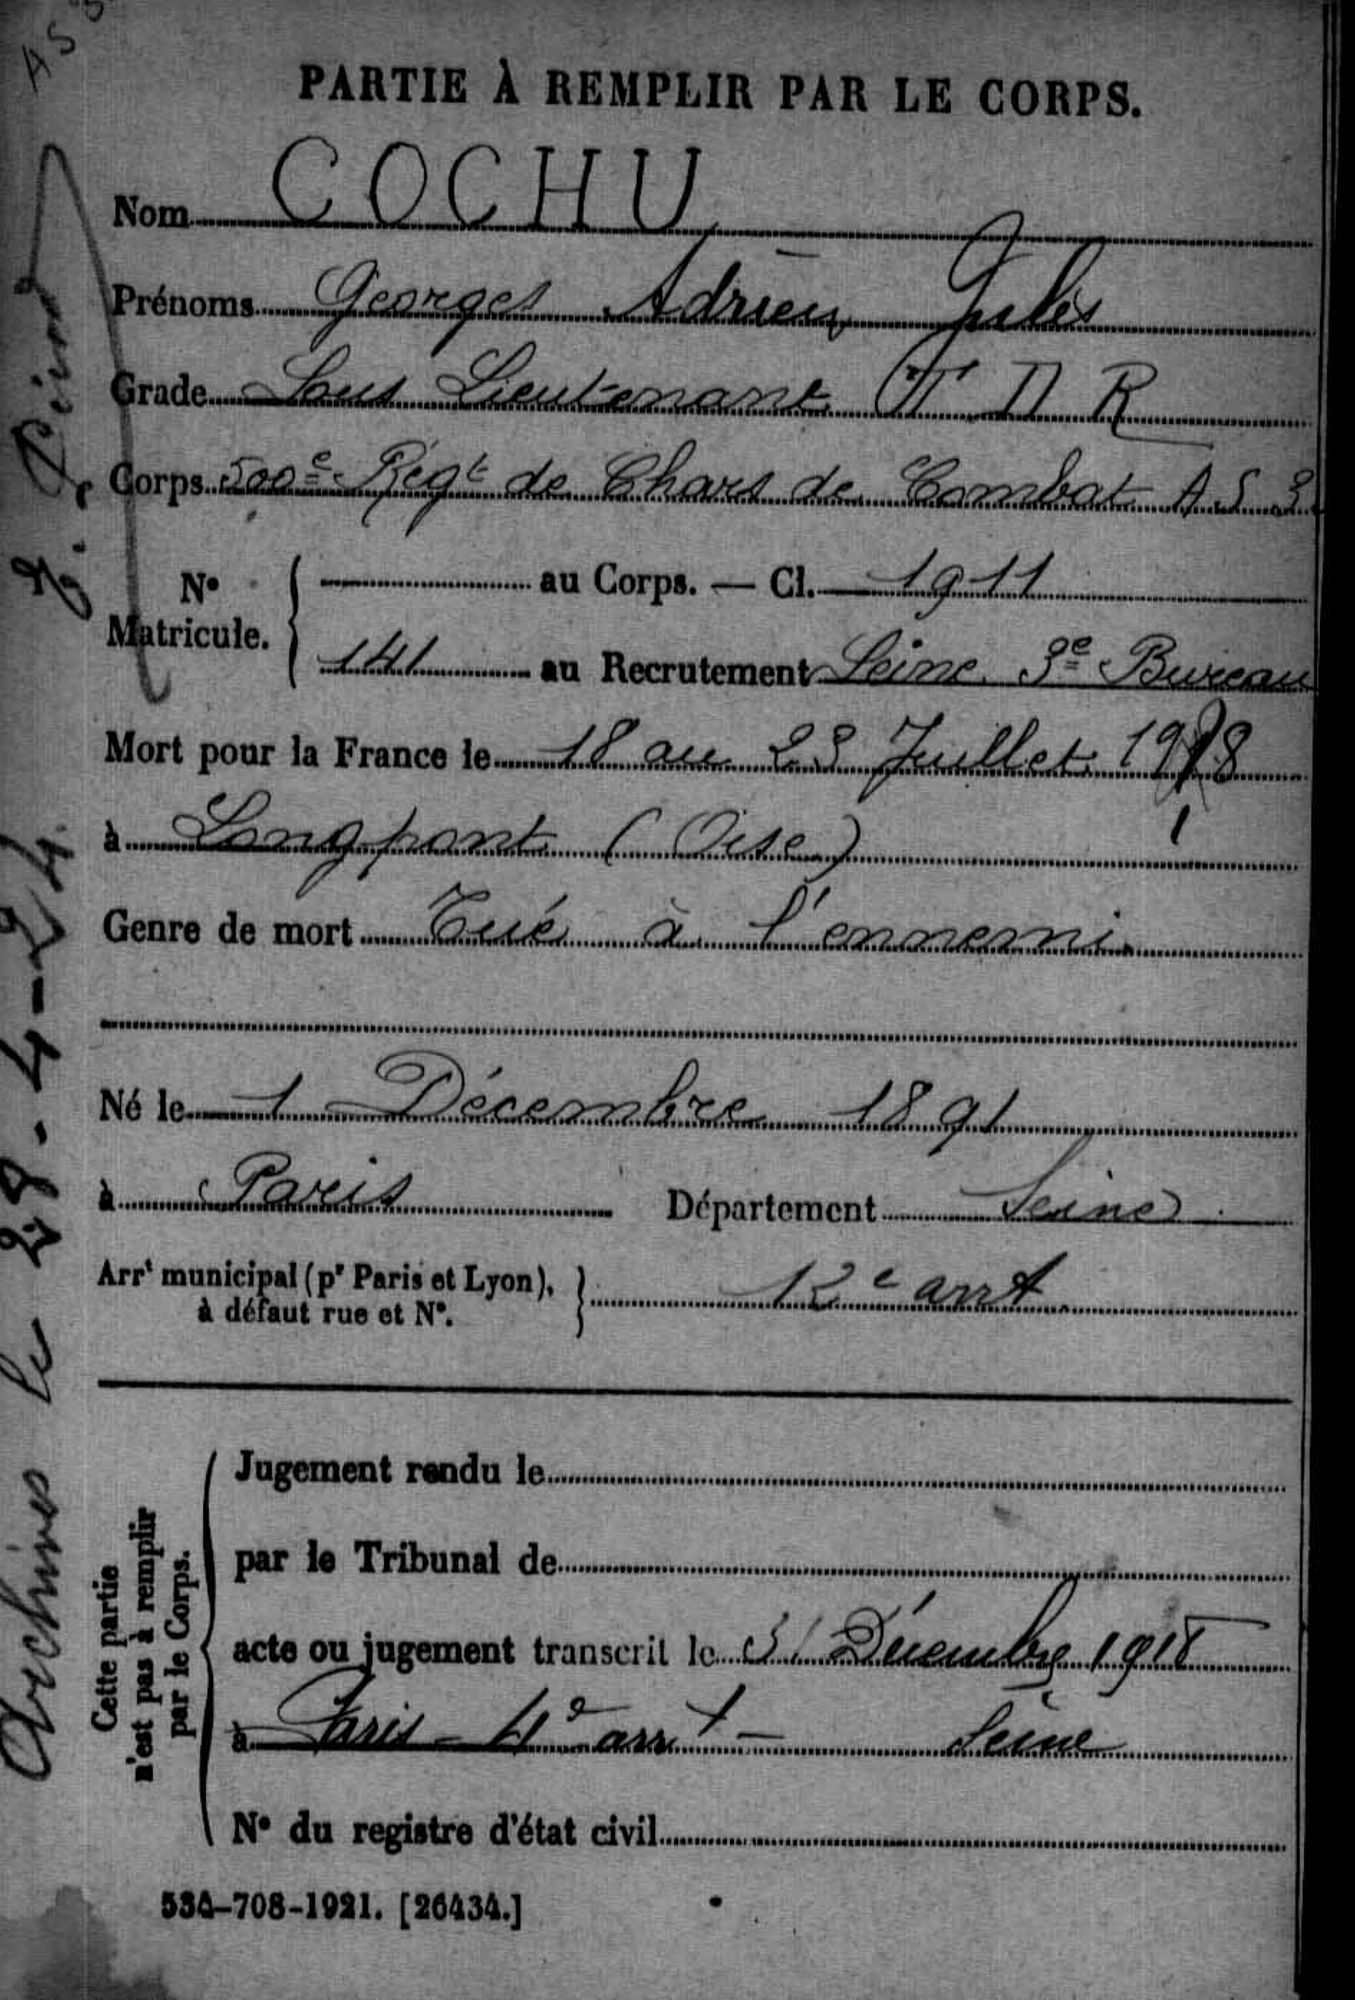 PARTIE À REMPLIR PAR LE CORPS.
Nom COCHU
Prénoms Georges Adrien Jules
Grade Sous Lieutenant
Corps 500e Régt de Chars de Combat A S 3
No Matricule.
au Corps. — Cl. 1911
141 au Recrutement Seine 3e Bureau
Mort pour la France le 18 au 23 Juillet 1918
à Longpont (Oise)
Genre de mort Tué à l'ennemi
Né le 1 Décembre 1891
à Paris Département Seine
Arrt municipal (pr Paris et Lyon),
à défaut rue et No.
12e arrt
Cette partie
n'est pas à remplir
par le Corps.
Jugement rendu le
par le Tribunal de
acte ou jugement transcrit le 31 Décembre 1918
à Paris - 4e arrt - Seine
No du registre d'état civil
534-708-1921. [26434.]
Archives le